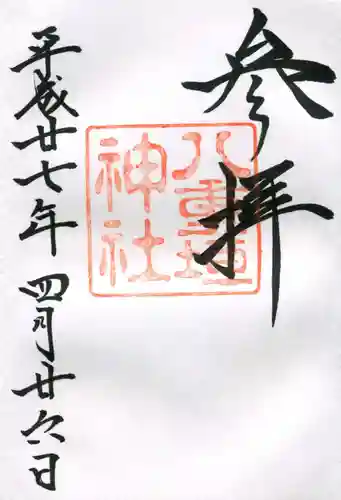 参拝
八重垣
神社
平成廿七年四月廿六日